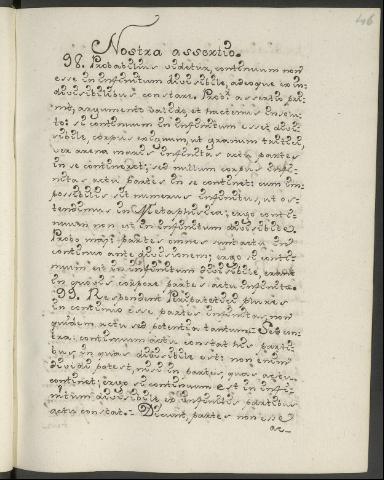 46
Nostra assertio.
98. Probabilius videtur, continuum non
esse in infinitum divisibile, adeoque ex in-
divisibilibus constare. Probr assertio pri-
mo, argumento valido, et hactenus insolu-
to: si continuum in infinitum esset divi-
sibile, corpus exiguum, ut granum tritici,
vel arena maris infinitas actu partes
in se contineret; sed nullum corpus infi-
nitas actu partes in se continet: cum im-
possibilis sit numerus infinitus, ut os-
tendimus in Metaphisica; ergo conti-
nuum non est in infinitum divisibile.
Probo maj: partes omnes sunt actu in
continuo ante divisionem; ergo si conti-
nuum est in infinitum divisibile, erunt
in quovis corpore partes actu infinitae.
99. Respondent Peripatetici plures
in continuo esse partes infinitas, non
quidem actu sed potentia tantum. Sed con-
tra: continuum actu constat his parti-
bus, in quas divisibile est: non enim
dividi potest, nisi in partes, quas actu
continet; ergo si continuum est in infi-
nitum divisibile ex infinitis partibus
actu constat. Dicunt, partes non esse
ac-